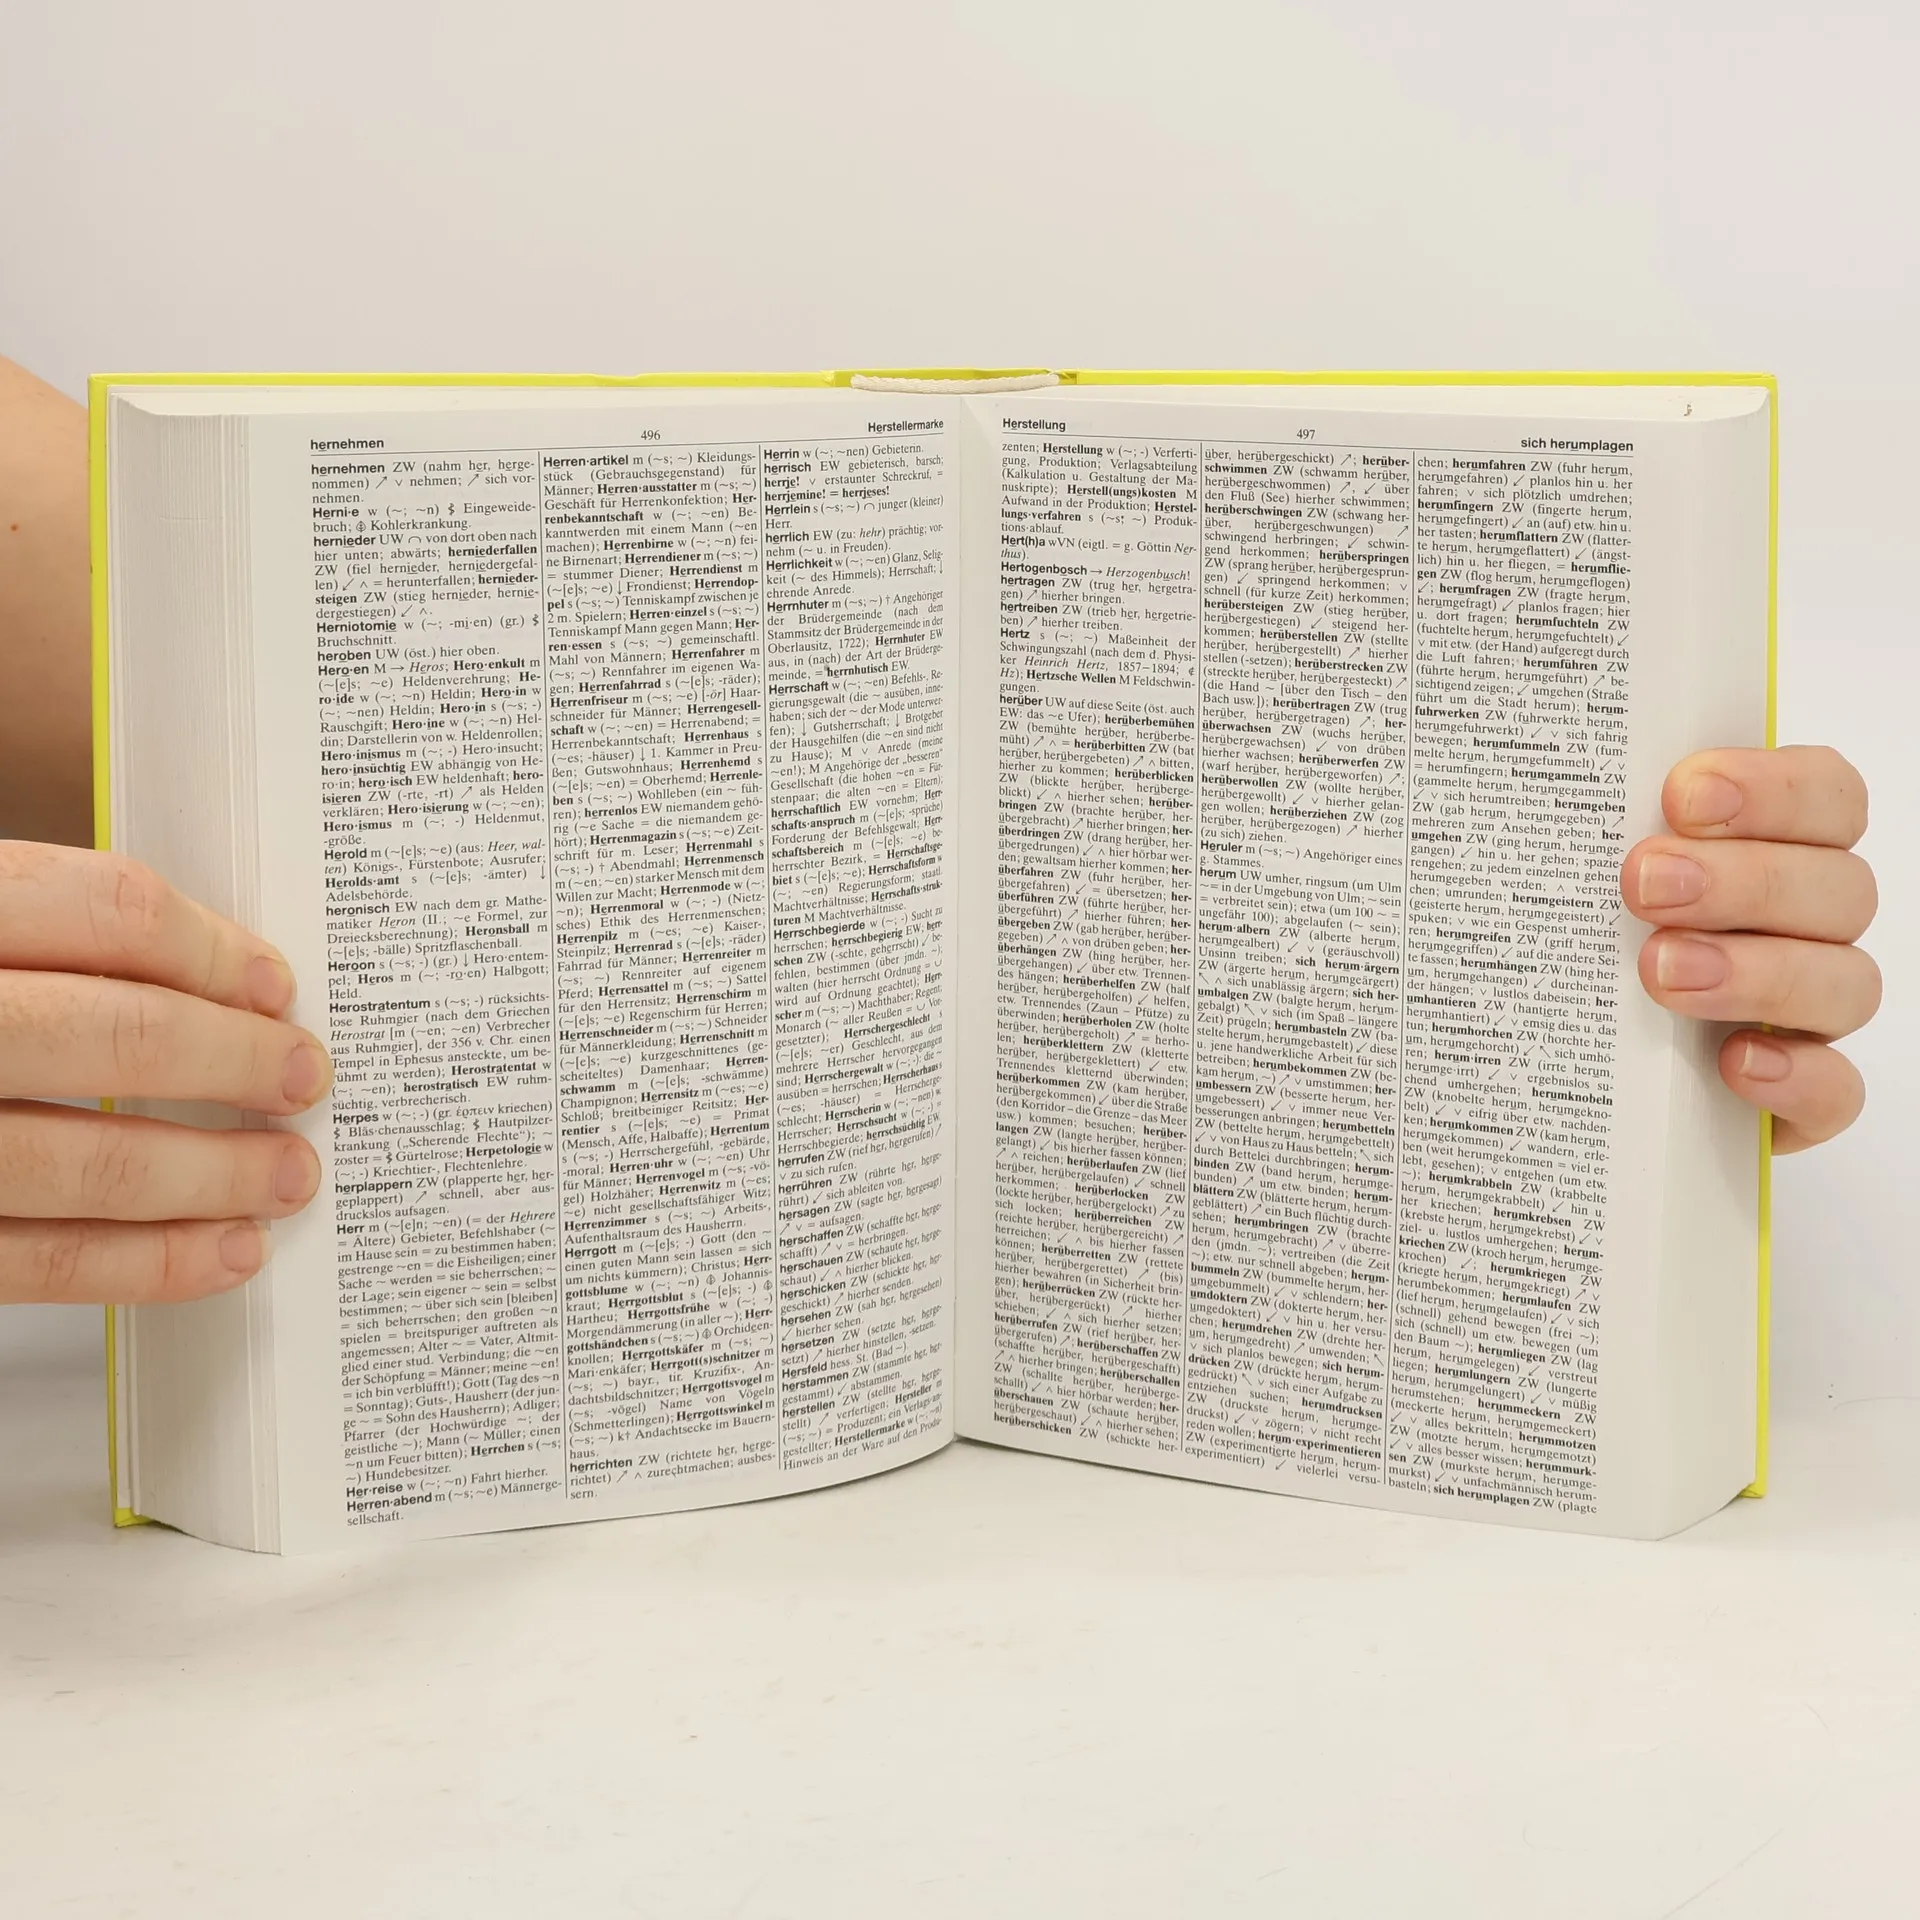 hernehmen
496
Herstellermarke
hernehmen ZW (nahm her, herge-
nommen) ↗ ∨ nehmen; ↗ sich vor-
nehmen.
Herni·e w (~; ~n) Eingeweide-
bruch; Kohlerkrankung.
hernieder UW von dort oben nach
hier unten; abwärts; herniederfallen
ZW (fiel hernieder, herniedergefal-
len) ↙ ∧ = herunterfallen; hernieder-
steigen ZW (stieg hernieder, hernie-
dergestiegen) ↙ ∧.
Herniotomie w (~; -mi·en) (gr.)
Bruchschnitt.
heroben UW (öst.) hier oben.
Hero·en M → Heros; Hero·enkult m
(~[e]s; ~e) Heldenverehrung; He-
ro·ide w (~; ~n) Heldin; Hero·in w
(~; ~nen) Heldin; Hero·in s (~s; -)
Rauschgift; Hero·ine w (~; ~n) Hel-
din; Darstellerin von w. Heldenrollen;
Hero·inismus m (~; -) Hero·insucht;
hero·insüchtig EW abhängig von He-
ro·in; hero·isch EW heldenhaft; hero-
isieren ZW (-rte, -rt) ↗ als Helden
verklären; Hero·isierung w (~; ~en);
Hero·ismus m (~; -) Heldenmut,
-größe.
Herold m (~[e]s; ~e) (aus: Heer, wal-
ten) Königs-, Fürstenbote; Ausrufer;
Herolds·amt s (~[e]s; -ämter) ↓
Adelsbehörde.
heronisch EW nach dem gr. Mathe-
matiker Heron (II.; ~e Formel, zur
Dreiecksberechnung); Heronsball m
(~[e]s; -bälle) Spritzflaschenball.
Heroon s (~s; -) (gr.) ↓ Hero·entem-
pel; Heros m (~; -ro·en) Halbgott;
Held.
Herostratentum s (~s; -) rücksichts-
lose Ruhmgier (nach dem Griechen
Herostrat [m (~en; ~en) Verbrecher
aus Ruhmgier], der 356 v. Chr. einen
Tempel in Ephesus ansteckte, um be-
rühmt zu werden); Herostratentat w
(~; ~en); herostratisch EW ruhm-
süchtig, verbrecherisch.
Herpes w (~; -) (gr. ἕρπειν kriechen)
Bläs·chenausschlag; Hautpilzer-
krankung („Scherende Flechte“); ~
zoster = Gürtelrose; Herpetologie w
(~; -) Kriechtier-, Flechtenlehre.
herplappern ZW (plapperte her, her-
geplappert) ↗ schnell, aber aus-
druckslos aufsagen.
Herr m (~[e]n; ~en) (= der Hehrere
= Ältere) Gebieter, Befehlshaber (~
im Hause sein = zu bestimmen haben;
gestrenge ~en = die Eisheiligen; einer
Sache ~ werden = sie beherrschen; ~
der Lage; sein eigener ~ sein = selbst
bestimmen; ~ über sich sein [bleiben]
= sich beherrschen; den großen ~n
spielen = breitspuriger auftreten als
angemessen; Alter ~ = Vater, Altmit-
glied einer stud. Verbindung; die ~en
der Schöpfung = Männer; meine ~en!
= ich bin verblüfft!); Gott (Tag des ~n
= Sonntag); Guts-, Hausherr (der jun-
ge ~ = Sohn des Hausherrn); Adliger;
Pfarrer (der Hochwürdige ~; der
geistliche ~); Mann (~ Müller; einen
~n um Feuer bitten); Herrchen s (~s;
~) Hundebesitzer.
Her·reise w (~; ~n) Fahrt hierher.
Herren·abend m (~s; ~e) Männerge-
sellschaft.
Herren·artikel m (~s; ~) Kleidungs-
stück (Gebrauchsgegenstand) für
Männer; Herren·ausstatter m (~s; ~)
Geschäft für Herrenkonfektion; Her-
renbekanntschaft w (~; ~en) Be-
kanntwerden mit einem Mann (~en
machen); Herrenbirne w (~; ~n) fei-
ne Birnenart; Herrendiener m (~s; ~)
= stummer Diener; Herrendienst m
(~[e]s; ~e) ↓ Frondienst; Herrendop-
pel s (~s; ~) Tenniskampf zwischen je
2 m. Spielern; Herren·einzel s (~s; ~)
Tenniskampf Mann gegen Mann; Her-
ren·essen s (~s; ~) gemeinschaftl.
Mahl von Männern; Herrenfahrer m
(~s; ~) Rennfahrer im eigenen Wa-
gen; Herrenfahrrad s (~[e]s; -räder);
Herrenfriseur m (~s; ~e) [-ör] Haar-
schneider für Männer; Herrengesell-
schaft w (~; ~en) = Herrenabend; =
Herrenbekanntschaft; Herrenhaus s
(~es; -häuser) ↓ 1. Kammer in Preu-
ßen; Gutswohnhaus; Herrenhemd s
(~[e]s; ~en) = Oberhemd; Herrenle-
ben s (~s; ~) Wohlleben (ein ~ füh-
ren); herrenlos EW niemandem gehö-
rig (~e Sache = die niemandem ge-
hört); Herrenmagazin s (~s; ~e) Zeit-
schrift für m. Leser; Herrenmahl s
(~s; -) † Abendmahl; Herrenmensch
m (~en; ~en) starker Mensch mit dem
Willen zur Macht; Herrenmode w (~;
~n); Herrenmoral w (~; -) (Nietz-
sches) Ethik des Herrenmenschen;
Herrenpilz m (~es; ~e) Kaiser-,
Steinpilz; Herrenrad s (~[e]s; -räder)
Fahrrad für Männer; Herrenreiter m
(~s; ~) Rennreiter auf eigenem
Pferd; Herrensattel m (~s; ~) Sattel
für den Herrensitz; Herrenschirm m
(~[e]s; ~e) Regenschirm für Herren;
Herrenschneider m (~s; ~) Schneider
für Männerkleidung; Herrenschnitt m
(~[e]s; ~e) kurzgeschnittenes (ge-
scheiteltes) Damenhaar; Herren-
schwamm m (~[e]s; -schwämme)
Champignon; Herrensitz m (~es; ~e)
Schloß; breitbeiniger Reitsitz; Her-
rentier s (~[e]s; ~e) = Primat
(Mensch, Affe, Halbaffe); Herrentum
s (~s; -) Herrschergefühl, -gebärde,
-moral; Herren·uhr w (~; ~en) Uhr
für Männer; Herrenvogel m (~s; -vö-
gel) Holzhäher; Herrenwitz m (~es;
~e) nicht gesellschaftsfähiger Witz;
Herrenzimmer s (~s; ~) Arbeits-,
Aufenthaltsraum des Hausherrn.
Herrgott m (~[e]s; -) Gott (den ~
einen guten Mann sein lassen = sich
um nichts kümmern); Christus; Herr-
gottsblume w (~; ~n) Johannis-
kraut; Herrgottsblut s (~[e]s; -)
Hartheu; Herrgottsfrühe w (~; -)
Morgendämmerung (in aller ~); Herr-
gottshändchen s (~s; ~) Orchideen-
knollen; Herrgottskäfer m (~s; ~)
Mari·enkäfer; Herrgott(s)schnitzer m
(~s; ~) bayr., tir. Kruzifix-, An-
dachtsbildschnitzer; Herrgottsvogel m
(~s; -vögel) Name von Vögeln
(Schmetterlingen); Herrgottswinkel m
(~s; ~) k† Andachtsecke im Bauern-
haus.
herrichten ZW (richtete her, herge-
richtet) ↗ ∧ zurechtmachen; ausbes-
sern.
Herrin w (~; ~nen) Gebieterin.
herrisch EW gebieterisch, barsch;
herrje! ∨ erstaunter Schreckruf, =
herrjemine! = herrjeses!
Herrlein s (~s; ~) junger (kleiner)
Herr.
herrlich EW (zu: hehr) prächtig; vor-
nehm (~ u. in Freuden).
Herrlichkeit w (~; ~en) Glanz, Selig-
keit (~ des Himmels); Herrschaft; ↓
ehrende Anrede.
Herrnhuter m (~s; ~) † Angehöriger
der Brüdergemeinde (nach dem
Stammsitz der Brüdergemeinde in der
Oberlausitz, 1722); Herrnhuter EW
aus, in (nach) der Art der Brüderge-
meinde, = herrnhutisch EW.
Herrschaft w (~; ~en) Befehls-, Re-
gierungsgewalt (die ~ ausüben, inne-
haben; sich der ~ der Mode unterwer-
fen); ↓ Gutsherrschaft; ↓ Brotgeber
der Hausgehilfen (die ~en sind nicht
zu Hause); M ∨ Anrede (meine
~en!); M Angehörige der „besseren“
Gesellschaft (die hohen ~en = Für-
stenpaar; die alten ~en = Eltern);
herrschaftlich EW vornehm; Herr-
schafts·anspruch m (~[e]s; -sprüche)
Forderung der Befehlsgewalt; Herr-
schaftsbereich m (~[e]s; ~e) be-
herrschter Bezirk, = Herrschaftsge-
biet s (~[e]s; ~e); Herrschaftsform w
(~; ~en) Regierungsform; staatl.
Machtverhältnisse; Herrschafts·struk-
turen M Machtverhältnisse.
Herrschbegierde w (~; -) Sucht zu
herrschen; herrschbegierig EW; herr-
schen ZW (-schte, geherrscht) ↙ be-
fehlen, bestimmen (über jmdn. ~);
walten (hier herrscht Ordnung = ∪
wird auf Ordnung geachtet); Herr-
scher m (~s; ~) Machthaber; Regent;
Monarch (~ aller Reußen = ∪ Vor-
gesetzter); Herrschergeschlecht s
(~[e]s; ~er) Geschlecht, aus dem
mehrere Herrscher hervorgegangen
sind; Herrschergewalt w (~; -): die ~
ausüben = herrschen; Herrscherhaus s
(~es; -häuser) = Herrscherge-
schlecht; Herrscherin w (~; ~nen) w.
Herrscher; Herrschsucht w (~; -) =
Herrschbegierde; herrschsüchtig EW.
herrufen ZW (rief her, hergerufen) ↗
∨ zu sich rufen.
herrühren ZW (rührte her, herge-
rührt) ↙ sich ableiten von.
hersagen ZW (sagte her, hergesagt)
↗ ∨ = aufsagen.
herschaffen ZW (schaffte her, herge-
schafft) ↗ ∨ = herbringen.
herschauen ZW (schaute her, herge-
schaut) ↙ ∧ hierher blicken.
herschicken ZW (schickte her, her-
geschickt) ↗ hierher senden.
hersehen ZW (sah her, hergesehen)
↙ hierher sehen.
hersetzen ZW (setzte her, herge-
setzt) ↗ hierher hinstellen, -setzen.
Hersfeld hess. St. (Bad ~).
herstammen ZW (stammte her, her-
gestammt) ↙ abstammen.
herstellen ZW (stellte her, herge-
stellt) ↗ verfertigen; Hersteller m
(~s; ~) = Produzent; ein Verlags-an-
gestellter; Herstellermarke w (~; ~n)
Hinweis an der Ware auf den Produ-
Herstellung
497
sich herumplagen
zenten; Herstellung w (~; -) Verferti-
gung, Produktion; Verlagsabteilung
(Kalkulation u. Gestaltung der Ma-
nuskripte); Herstell(ungs)kosten M
Aufwand in der Produktion; Herstel-
lungs·verfahren s (~s; ~) Produk-
tions·ablauf.
Hert(h)a wVN (eigtl. = g. Göttin Ner-
thus).
Hertogenbosch → Herzogenbusch!
hertragen ZW (trug her, hergetra-
gen) ↗ hierher bringen.
hertreiben ZW (trieb her, hergetrie-
ben) ↗ hierher treiben.
Hertz s (~; ~) Maßeinheit der
Schwingungszahl (nach dem d. Physi-
ker Heinrich Hertz, 1857–1894; ¢
Hz); Hertzsche Wellen M Feldschwin-
gungen.
herüber UW auf diese Seite (öst. auch
EW: das ~e Ufer); herüberbemühen
ZW (bemühte herüber, herüberbe-
müht) ↗ ∧ = herüberbitten ZW (bat
herüber, herübergebeten) ↗ ∧ bitten,
hierher zu kommen; herüberblicken
ZW (blickte herüber, herüberge-
blickt) ↙ ∧ hierher sehen; herüber-
bringen ZW (brachte herüber, her-
übergebracht) ↗ hierher bringen; her-
überdringen ZW (drang herüber, her-
übergedrungen) ↙ ∧ hierher hörbar wer-
den; gewaltsam hierher kommen; her-
überfahren ZW (fuhr herüber, her-
übergefahren) ↙ = übersetzen; her-
überführen ZW (führte herüber, her-
übergeführt) ↗ hierher führen; her-
übergeben ZW (gab herüber, herüber-
gegeben) ↗ ∧ von drüben geben; her-
überhängen ZW (hing herüber, her-
übergehangen) ↙ über etw. Trennen-
des hängen; herüberhelfen ZW (half
herüber, herübergeholfen) ↙ helfen,
etw. Trennendes (Zaun – Pfütze) zu
überwinden; herüberholen ZW (holte
herüber, herübergeholt) ↗ = herho-
len; herüberklettern ZW (kletterte
herüber, herübergeklettert) ↙ etw.
Trennendes kletternd überwinden;
herüberkommen ZW (kam herüber,
herübergekommen) ↙ über die Straße
(den Korridor – die Grenze – das Meer
usw.) kommen; besuchen; herüber-
langen ZW (langte herüber, herüber-
gelangt) ↙ bis hierher fassen können;
↗ ∧ reichen; herüberlaufen ZW (lief
herüber, herübergelaufen) ↙ schnell
herkommen; herüberlocken ZW
(lockte herüber, herübergelockt) ↗ zu
sich locken; herüberreichen ZW
(reichte herüber, herübergereicht) ↗
herreichen; ↙ ∧ bis hierher fassen
können; herüberretten ZW (rettete
herüber, herübergerettet) ↗ (bis)
hierher bewahren (in Sicherheit brin-
gen); herüberrücken ZW (rückte her-
über, herübergerückt) ↗ hierher
schieben; ↙ ∧ sich hierher setzen;
herüberrufen ZW (rief herüber, her-
übergerufen) ↗; herüberschaffen ZW
(schaffte herüber, herübergeschafft)
↗ ∧ hierher bringen; herüberschallen
ZW (schallte herüber, herüberge-
schallt) ↙ ∧ hier hörbar werden; her-
überschauen ZW (schaute herüber,
herübergeschaut) ↙ ∧ hierher sehen;
herüberschicken ZW (schickte her-
über, herübergeschickt) ↗; herüber-
schwimmen ZW (schwamm herüber,
herübergeschwommen) ↗, ↙ über
den Fluß (See) hierher schwimmen;
herüberschwingen ZW (schwang her-
über, herübergeschwungen) ↗
schwingend herbringen; ↙ schwin-
gend herkommen; herüberspringen
ZW (sprang herüber, herübergesprun-
gen) ↙ springend herkommen; ∨
schnell (für kurze Zeit) herkommen;
herübersteigen ZW (stieg herüber,
herübergestiegen) ↙ steigend her-
kommen; herüberstellen ZW (stellte
herüber, herübergestellt) ↗ hierher
stellen (-setzen); herüberstrecken ZW
(streckte herüber, herübergesteckt) ↗
(die Hand ~ [über den Tisch – den
Bach usw.]); herübertragen ZW (trug
herüber, herübergetragen) ↗; her-
überwachsen ZW (wuchs herüber,
herübergewachsen) ↙ von drüben
hierher wachsen; herüberwerfen ZW
(warf herüber, herübergeworfen) ↗;
herüberwollen ZW (wollte herüber,
herübergewollt) ↙ ∨ hierher gelan-
gen wollen; herüberziehen ZW (zog
herüber, herübergezogen) ↗ hierher
(zu sich) ziehen.
Heruler m (~s; ~) Angehöriger eines
g. Stammes.
herum UW umher, ringsum (um Ulm
~ = in der Umgebung von Ulm; ~ sein
= verbreitet sein); etwa (um 100 ~ =
ungefähr 100); abgelaufen (~ sein);
herum·albern ZW (alberte herum,
herumgealbert) ↙ ∨ (geräuschvoll)
Unsinn treiben; sich herum·ärgern
ZW (ärgerte herum, herumgeärgert)
↖ ∧ sich unablässig ärgern; sich her-
umbalgen ZW (balgte herum, herum-
gebalgt) ↖ ∨ sich (im Spaß – längere
Zeit) prügeln; herumbasteln ZW (ba-
stelte herum, herumgebastelt) ↙ diese
u. jene handwerkliche Arbeit für sich
betreiben; herumbekommen ZW (be-
kam herum, ~) ↗ ∨ umstimmen; her-
umbessern ZW (besserte herum, her-
umgebessert) ↙ ∨ immer neue Ver-
besserungen anbringen; herumbetteln
ZW (bettelte herum, herumgebettelt)
↙ ∨ von Haus zu Haus betteln; ↖ sich
durch Bettelei durchbringen; herum-
binden ZW (band herum, herumge-
bunden) ↗ um etw. binden; herum-
blättern ZW (blätterte herum, herum-
geblättert) ↗ ein Buch flüchtig durch-
sehen; herumbringen ZW (brachte
herum, herumgebracht) ↗ ∨ überre-
den (jmdn. ~); vertreiben (die Zeit
~); etw. nur schnell abgeben; herum-
bummeln ZW (bummelte herum, her-
umgebummelt) ↙ ∨ schlendern; her-
umdoktern ZW (dokterte herum, her-
umgedoktert) ↙ ∨ hin u. her versu-
chen; herumdrehen ZW (drehte her-
um, herumgedreht) ↗ umwenden; ↖
∨ sich planlos bewegen; sich herum-
drücken ZW (drückte herum, herum-
gedrückt) ↖ ∨ sich einer Aufgabe zu
entziehen suchen; herumdrucksen
ZW (druckste herum, herumge-
druckst) ↙ ∨ zögern; ∨ nicht recht
reden wollen; herum·experimentieren
ZW (experimentierte herum, herum-
experimentiert) ↙ vielerlei versu-
chen; herumfahren ZW (fuhr herum,
herumgefahren) ↙ planlos hin u. her
fahren; ∨ sich plötzlich umdrehen;
herumfingern ZW (fingerte herum,
herumgefingert) ↙ an (auf) etw. hin u.
her tasten; herumflattern ZW (flatter-
te herum, herumgeflattert) ↙ (ängst-
lich) hin u. her fliegen, = herumflie-
gen ZW (flog herum, herumgeflogen)
↙; herumfragen ZW (fragte herum,
herumgefragt) ↙ planlos fragen; hier
u. dort fragen; herumfuchteln ZW
(fuchtelte herum, herumgefuchtelt) ↙
∨ mit etw. (der Hand) aufgeregt durch
die Luft fahren; herumführen ZW
(führte herum, herumgeführt) ↗ be-
sichtigend zeigen; ↙ umgehen (Straße
führt um die Stadt herum); herum-
fuhrwerken ZW (fuhrwerkte herum,
herumgefuhrwerkt) ↙ ∨ sich fahrig
bewegen; herumfummeln ZW (fum-
melte herum, herumgefummelt) ↙ ∨
= herumfingern; herumgammeln ZW
(gammelte herum, herumgegammelt)
↙ ∨ sich herumtreiben; herumgeben
ZW (gab herum, herumgegeben) ↗
mehreren zum Ansehen geben; her-
umgehen ZW (ging herum, herumge-
gangen) ↙ hin u. her gehen; spazie-
rengehen; zu jedem einzelnen gehen;
herumgegeben werden; ∧ verstrei-
chen; umrunden; herumgeistern ZW
(geisterte herum, herumgegeistert) ↙
spuken; ∨ wie ein Gespenst umherir-
ren; herumgreifen ZW (griff herum,
herumgegriffen) ↙ auf die andere Sei-
te fassen; herumhängen ZW (hing her-
um, herumgehangen) ↙ durcheinan-
der hängen; ∨ lustlos dabeisein; her-
umhantieren ZW (hantierte herum,
herumhantiert) ↙ ∨ emsig dies u. das
tun; herumhorchen ZW (horchte her-
um, herumgehorcht) ↙ ↖ sich umhö-
ren; herum·irren ZW (irrte herum,
herumge·irrt) ↙ ∨ ergebnislos su-
chend umhergehen; herumknobeln
ZW (knobelte herum, herumgekno-
belt) ↙ ∨ eifrig über etw. nachden-
ken; herumkommen ZW (kam herum,
herumgekommen) ↙ wandern, erle-
ben (weit herumgekommen = viel er-
lebt, gesehen); ∨ entgehen (um etw.
~); herumkrabbeln ZW (krabbelte
herum, herumgekrabbelt) ↙ hin u.
her kriechen; herumkrebsen ZW
(krebste herum, herumgekrebst) ↙ ∨
ziel- u. lustlos umhergehen; herum-
kriechen ZW (kroch herum, herumge-
krochen) ↙; herumkriegen ZW
(kriegte herum, herumgekriegt) ↗ ∨
herumbekommen; herumlaufen ZW
(lief herum, herumgelaufen) ↙ ∨ sich
(schnell) gehend bewegen (frei ~);
sich (schnell) um etw. bewegen (um
den Baum ~); herumliegen ZW (lag
herum, herumgelegen) ↙ verstreut
liegen; herumlungern ZW (lungerte
herum, herumgelungert) ↙ ∨ müßig
herumstehen; herummeckern ZW
(meckerte herum, herumgemeckert)
↙ ∨ alles bekritteln; herummotzen
ZW (motzte herum, herumgemotzt)
↙ ∨ alles besser wissen; herummurk-
sen ZW (murkste herum, herumge-
murkst) ↙ ∨ unfachmännisch herum-
basteln; sich herumplagen ZW (plagte